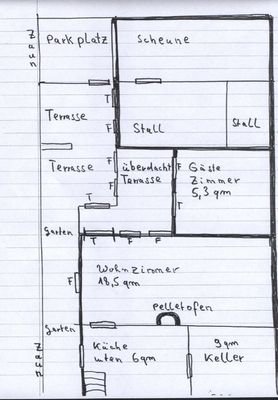 Parkplatz
Scheune
Zaun
T
Terrasse
F
Stall
Stall
Terrasse
F
überdacht
Terrasse
F
Gäste
Zimmer
5,3 qm
F
T
T
Garten
T
F
F
Wohnzimmer
18,5 qm
F
Pelletofen
Garten
Küche
unten 6qm
9qm
Keller
Zaun